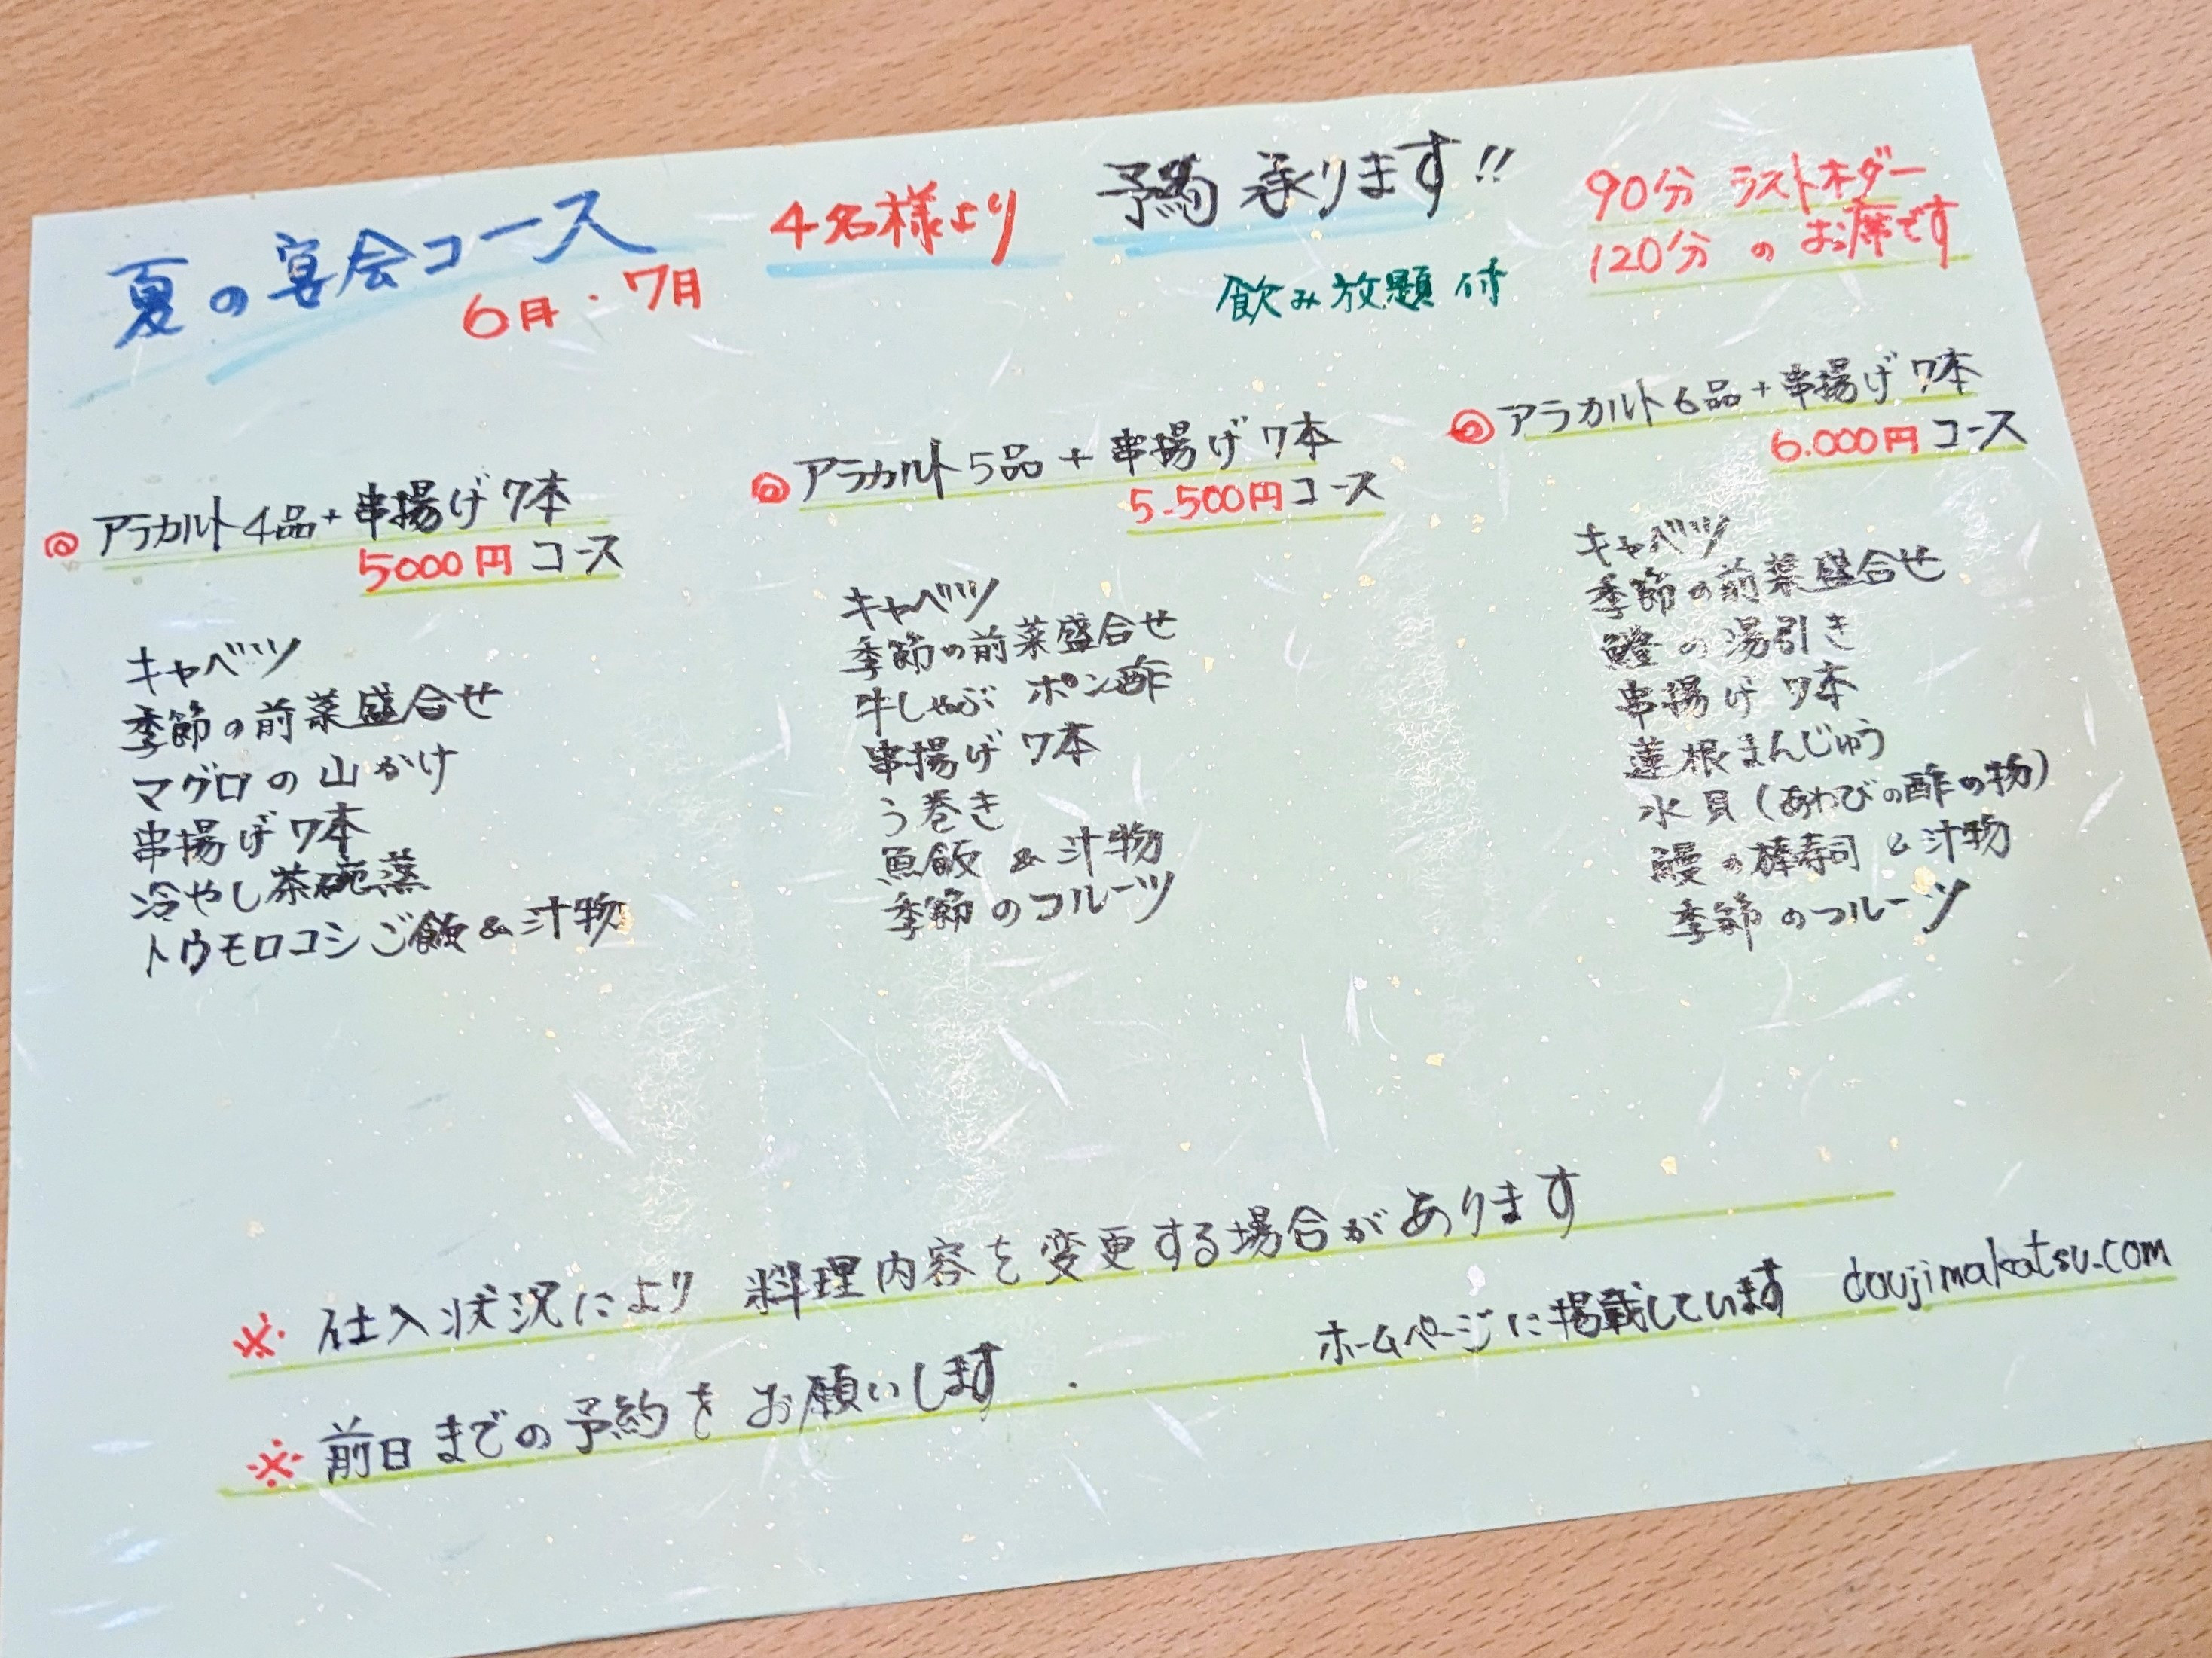 夏の宴会コース
6月・7月
4名様より
予約 承ります!!
飲み放題付
90分 ラストオーダー
120分 のお席です
◎ アラカルト4品+串揚げ7本
5000円コース
キャベツ
季節の前菜盛合せ
マグロの山かけ
串揚げ7本
冷やし茶碗蒸
トウモロコシご飯&汁物
◎ アラカルト5品+串揚げ7本
5.500円コース
キャベツ
季節の前菜盛合せ
牛しゃぶ ポン酢
串揚げ 7本
う巻き
魚飯 & 汁物
季節のフルーツ
◎ アラカルト6品+串揚げ7本
6.000円コース
キャベツ
季節の前菜盛合せ
の湯引き
串揚げ 7本
蓮根まんじゅう
水貝(あわびの酢の物)
鰻の棒寿司 & 汁物
季節のフルーツ
※ 仕入状況により 料理内容を変更する場合があります
※ 前日までの予約をお願いします.
ホームページに掲載しています doujimakatsu.com